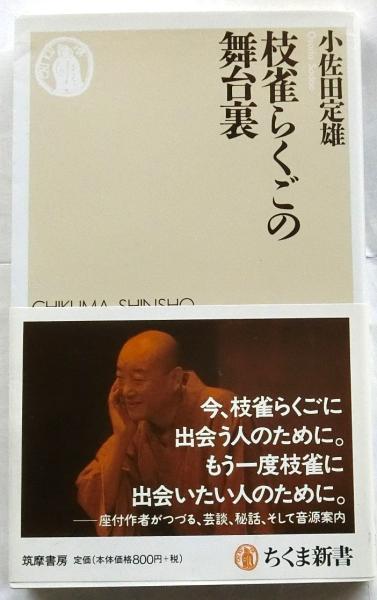 小佐田定雄
枝雀らくごの
舞台裏
CHIKUMA SHINSHO
今、枝雀らくごに
出会う人のために。
もう一度枝雀に
出会いたい人のために。
──座付作者がつづる、芸談、秘話、そして音源案内
筑摩書房 定価(本体価格800円+税)
ちくま新書